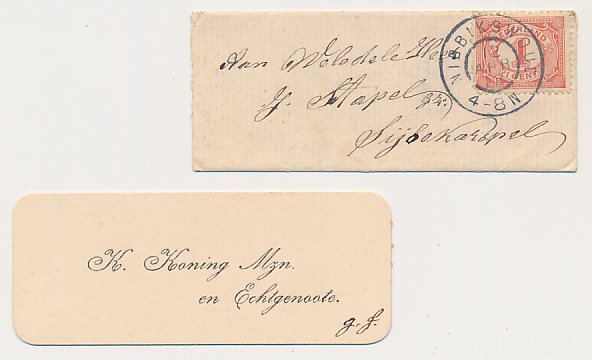 Aan Weledele Heer
J. Stapel Gz:
Sijbekarspel
NIBBIKSWOUD
4-8N
CENT
K. Koning Mzn.
en Echtgenoote.
g. f.